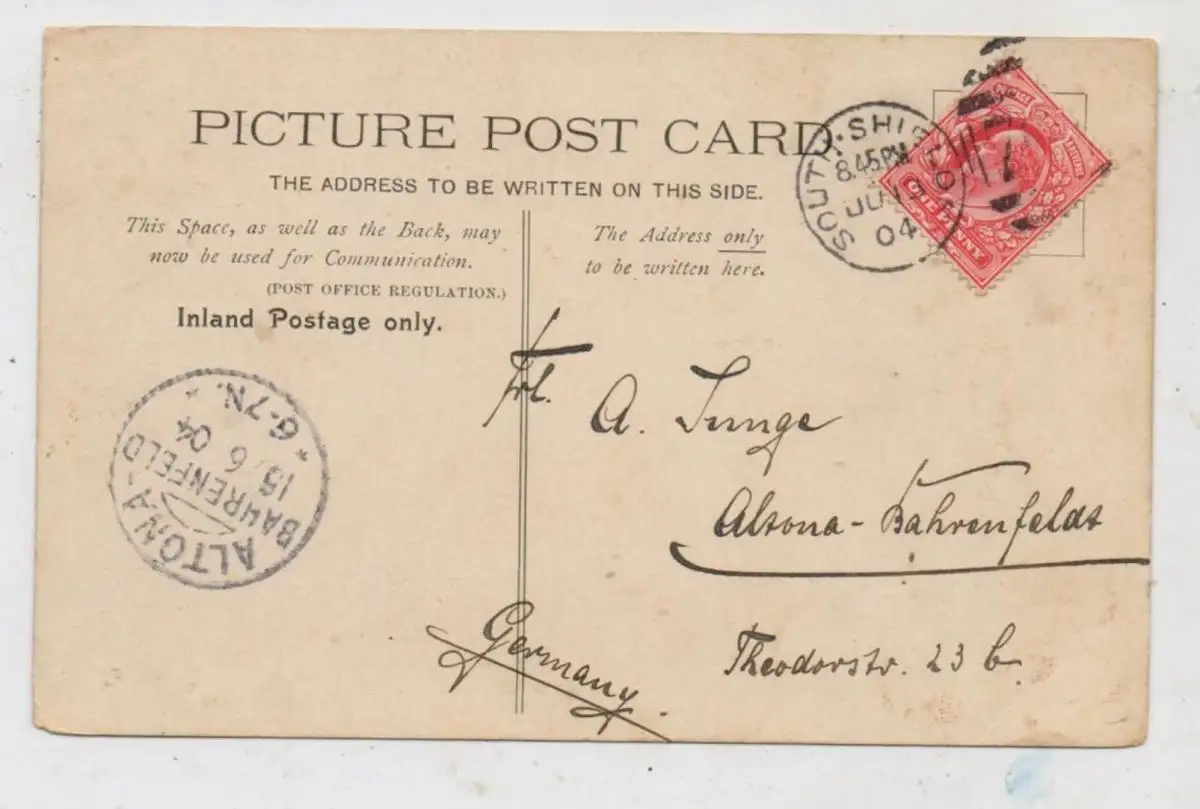 PICTURE POST CARD.
THE ADDRESS TO BE WRITTEN ON THIS SIDE.
This Space, as well as the Back, may
now be used for Communication.
(POST OFFICE REGULATION.)
Inland Postage only.
The Address only
to be written here.
SOUTH · SHIELDS
8.45 PM
JU
04
ONE PENNY
Frl. A. Junge
Altona-Bahrenfeldt
Theodorstr. 23 b
Germany.
ALTONA-
BAHRENFELD
6 04
* 6-7N. *